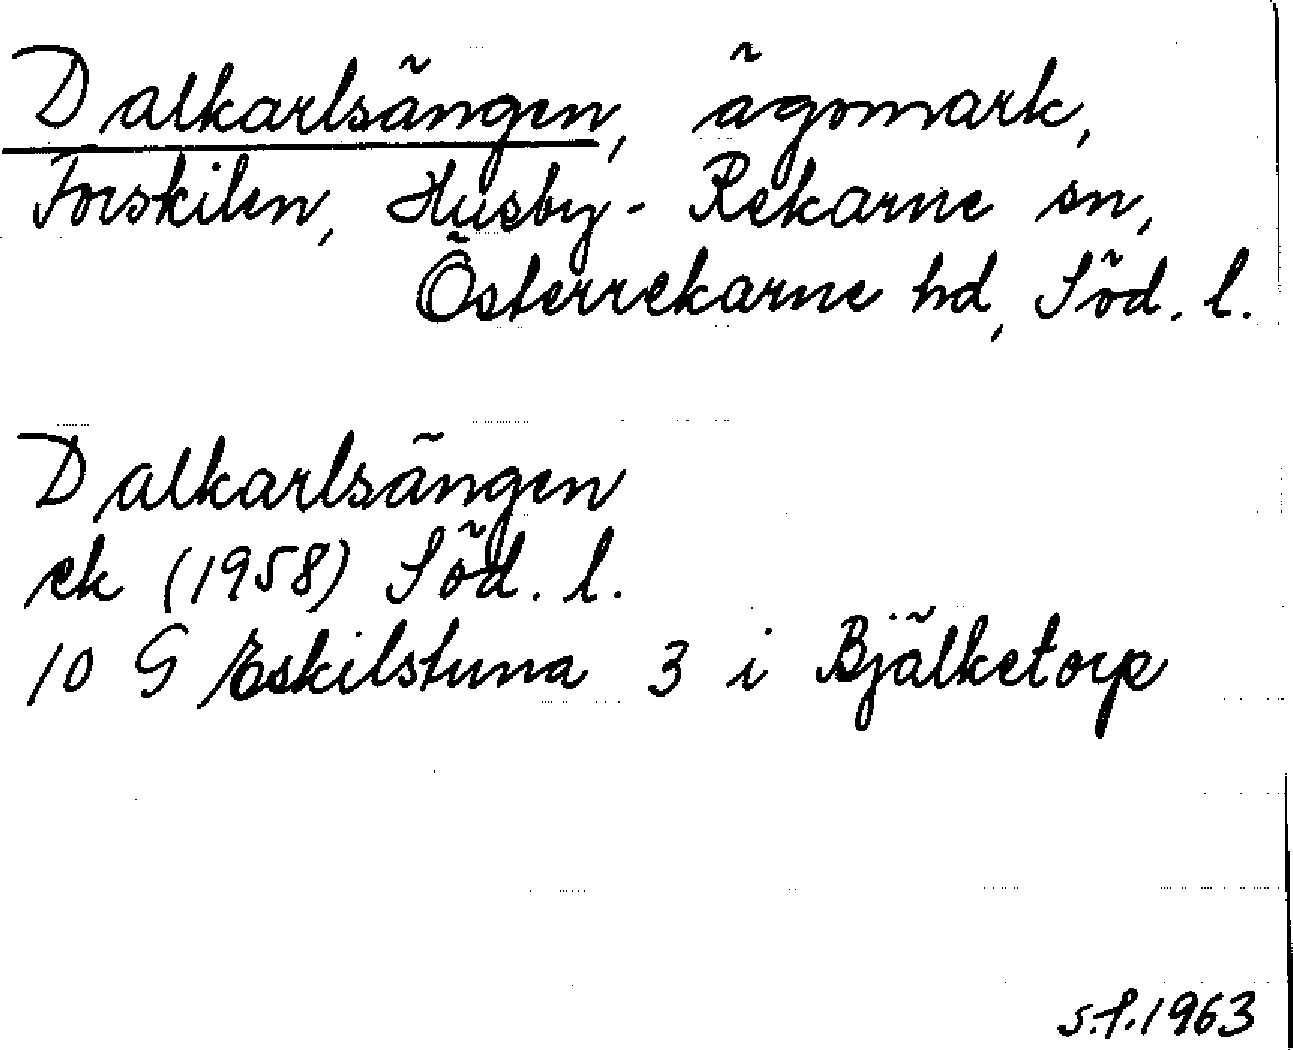 Dalkarlsängen, ägomark,
Forskilen, Husby-Rekarne sn,
Österrekarne hd, Söd. l.
Dalkarlsängen
ek (1958) Söd. l.
10 G Eskilstuna 3 i Bjälketorp
S.f. 1963